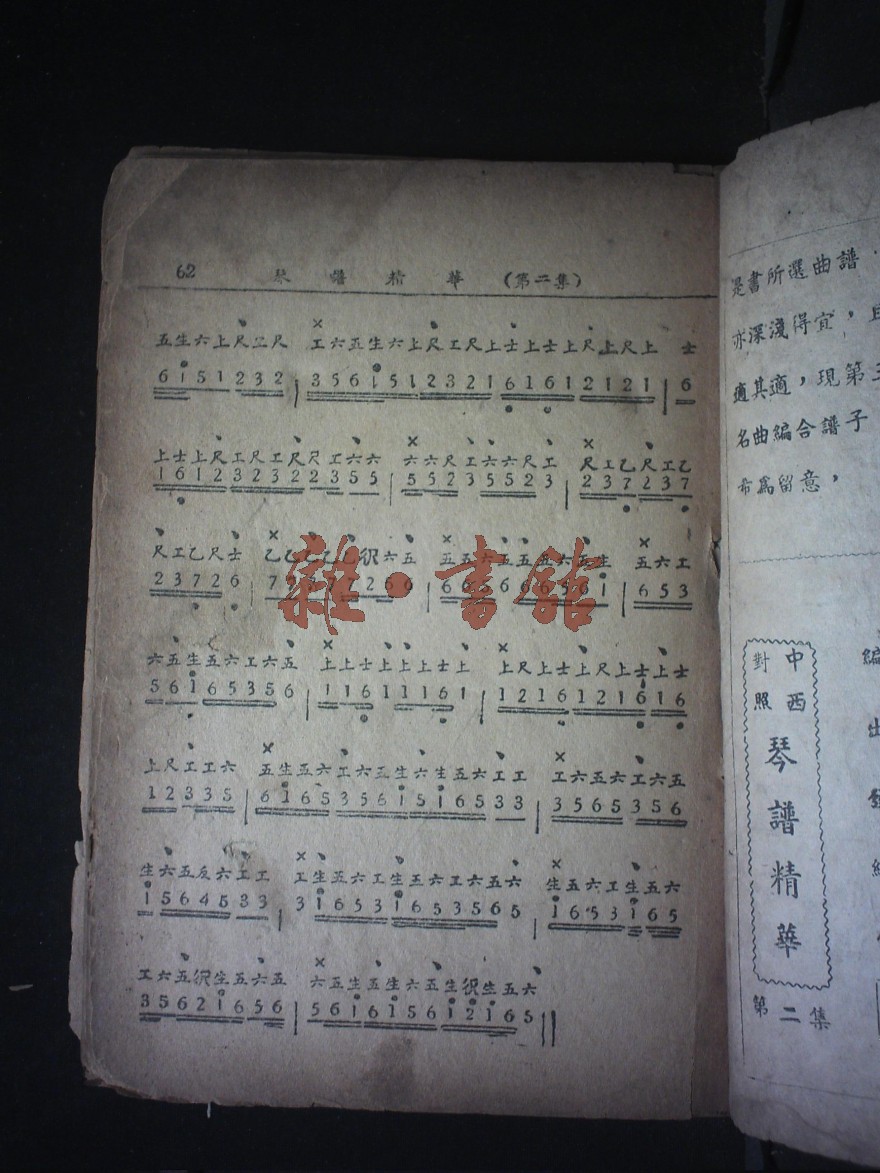 62 琴 譜 精 華 (第二集)
五生六上尺工尺 工六五生六上尺工尺上士上士上尺上尺上 士
6 i 5 1 2 3 2 | 3 5 6 i 5 1 2 3 2 1 6 1 6 1 2 1 2 1 | 6
上士上尺工尺工尺尺工六六 六六尺工六六尺工 尺工乙尺工乙
1 6 1 2 3 2 3 2 2 3 5 5 | 5 5 2 3 5 5 2 3 | 2 3 7 2 3 7
尺工乙尺士
2 3 7 2 6 | 6 5 3
五六工
雜·書館
六五生五六工六五 上上士上上上士上 上尺上士上尺上士上士
5 6 i 6 5 3 5 6 | 1 1 6 1 1 1 6 1 | 1 2 1 6 1 2 1 6 1 6
上尺工工六 五生五六工六五生六生五六工工 工六五六工六五
1 2 3 3 5 | 6 i 6 5 3 5 6 i 5 i 6 5 3 3 | 3 5 6 5 3 5 6
生六五反六工工 工生五六工生五六工六五六 生五六工生五六
i 5 6 4 5 3 3 | 3 i 6 5 3 i 6 5 3 5 6 5 | i 6 5 3 i 6 5
工六五伬生五六五 六五生五生六五生伬生五六
3 5 6 2 i 6 5 6 | 5 6 i 6 i 5 6 i 2 i 6 5
是書所選曲譜
亦深淺得宜，且
適其適，現第三
名曲編合譜子
希爲留意，
中西
對照
琴譜精華
第二集
編
出